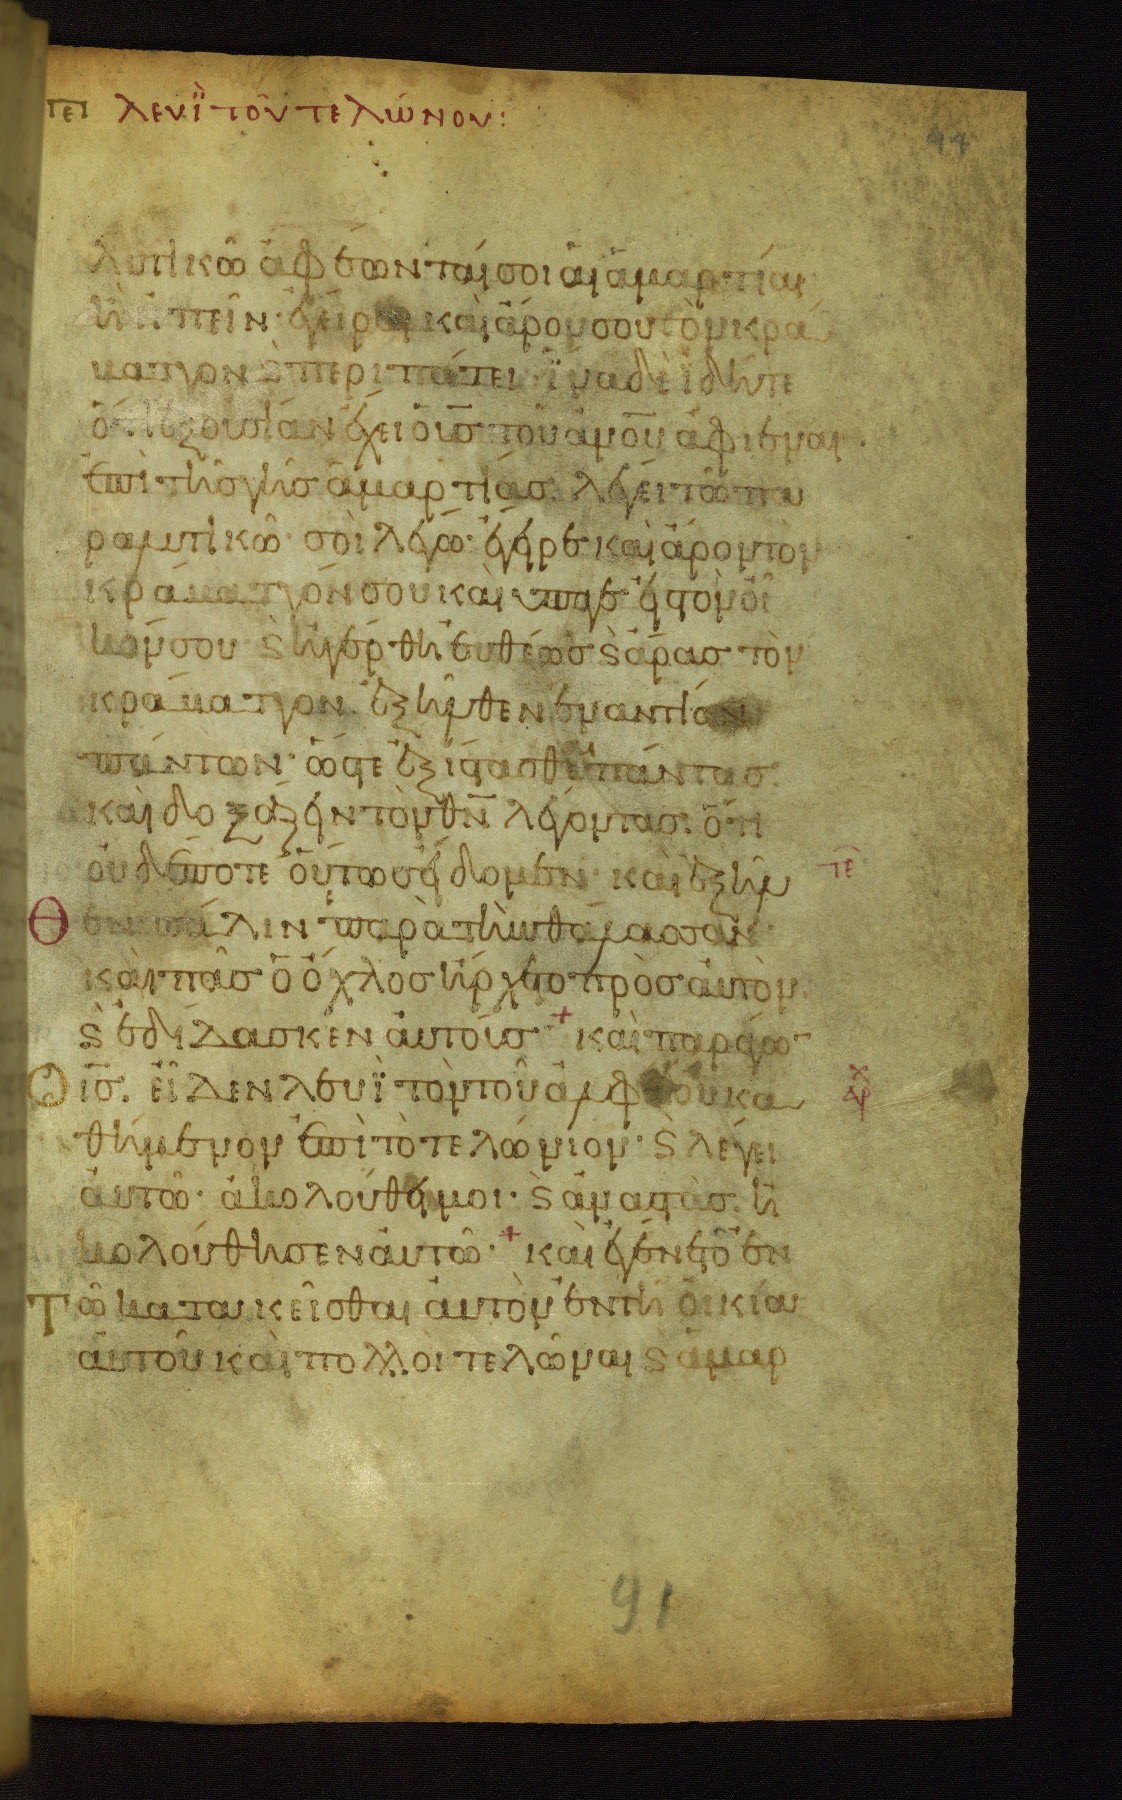 πε λευῒ τὸν τελώνον:
94
λυτικῶ ἀφέωνταί σοι αἱ ἁμαρτίαι
ἢ εἰπεῖν· ἔγειραι καὶ ἄρον σου τὸν κρά
βατγον ϗ περιπάτει· ἵνα δὲ εἰδῆτε
ὅτι ἐξουσίαν ἔχει ὁ υἱς τοῦ ἀνου ἀφιέναι
ἐπὶ τῆς γῆς ἁμαρτίας· λέγει τῶ πα
ραλυτικῶ· σοὶ λέγω· ἔγειρε καὶ ἄρον τὸν
κράβατγόν σου καὶ ὕπαγε εἰς τὸν οἶ
κόν σου ϗ ἠγέρθη εὐθέως ϗ ἄρας τὸν
κράβατγον ἐξῆλθεν ἐναντίον
πάντων· ὥστε ἐξίστασθαι πάντας
καὶ δοξάζειν τὸν θν λέγοντας· ὅτι
οὐδέποτε οὕτως εἴδομεν· καὶ ἐξῆλ
τε
θεν πάλιν παρὰ τὴν θάλασσαν·
καὶ πᾶς ὁ ὄχλος ἤρχετο πρὸς αὐτὸν
ϗ ἐδίδασκεν αὐτούς + καὶ παράγω
ὁ ις. εἶδεν λευῒ τὸν τοῦ ἀλφαίου κα
αρχ
θήμενον ἐπὶ τὸ τελώνιον· ϗ λέγει
αὐτῶ· ἀκολούθει μοι· ϗ ἀναστὰς ἠ
κολούθησεν αὐτῶ· + καὶ ἐγένετο ἐν
τῶ κατακεῖσθαι αὐτὸν ἐν τῆ οἰκία
αὐτοῦ καὶ πολλοὶ τελῶναι ϗ ἁμαρ
91